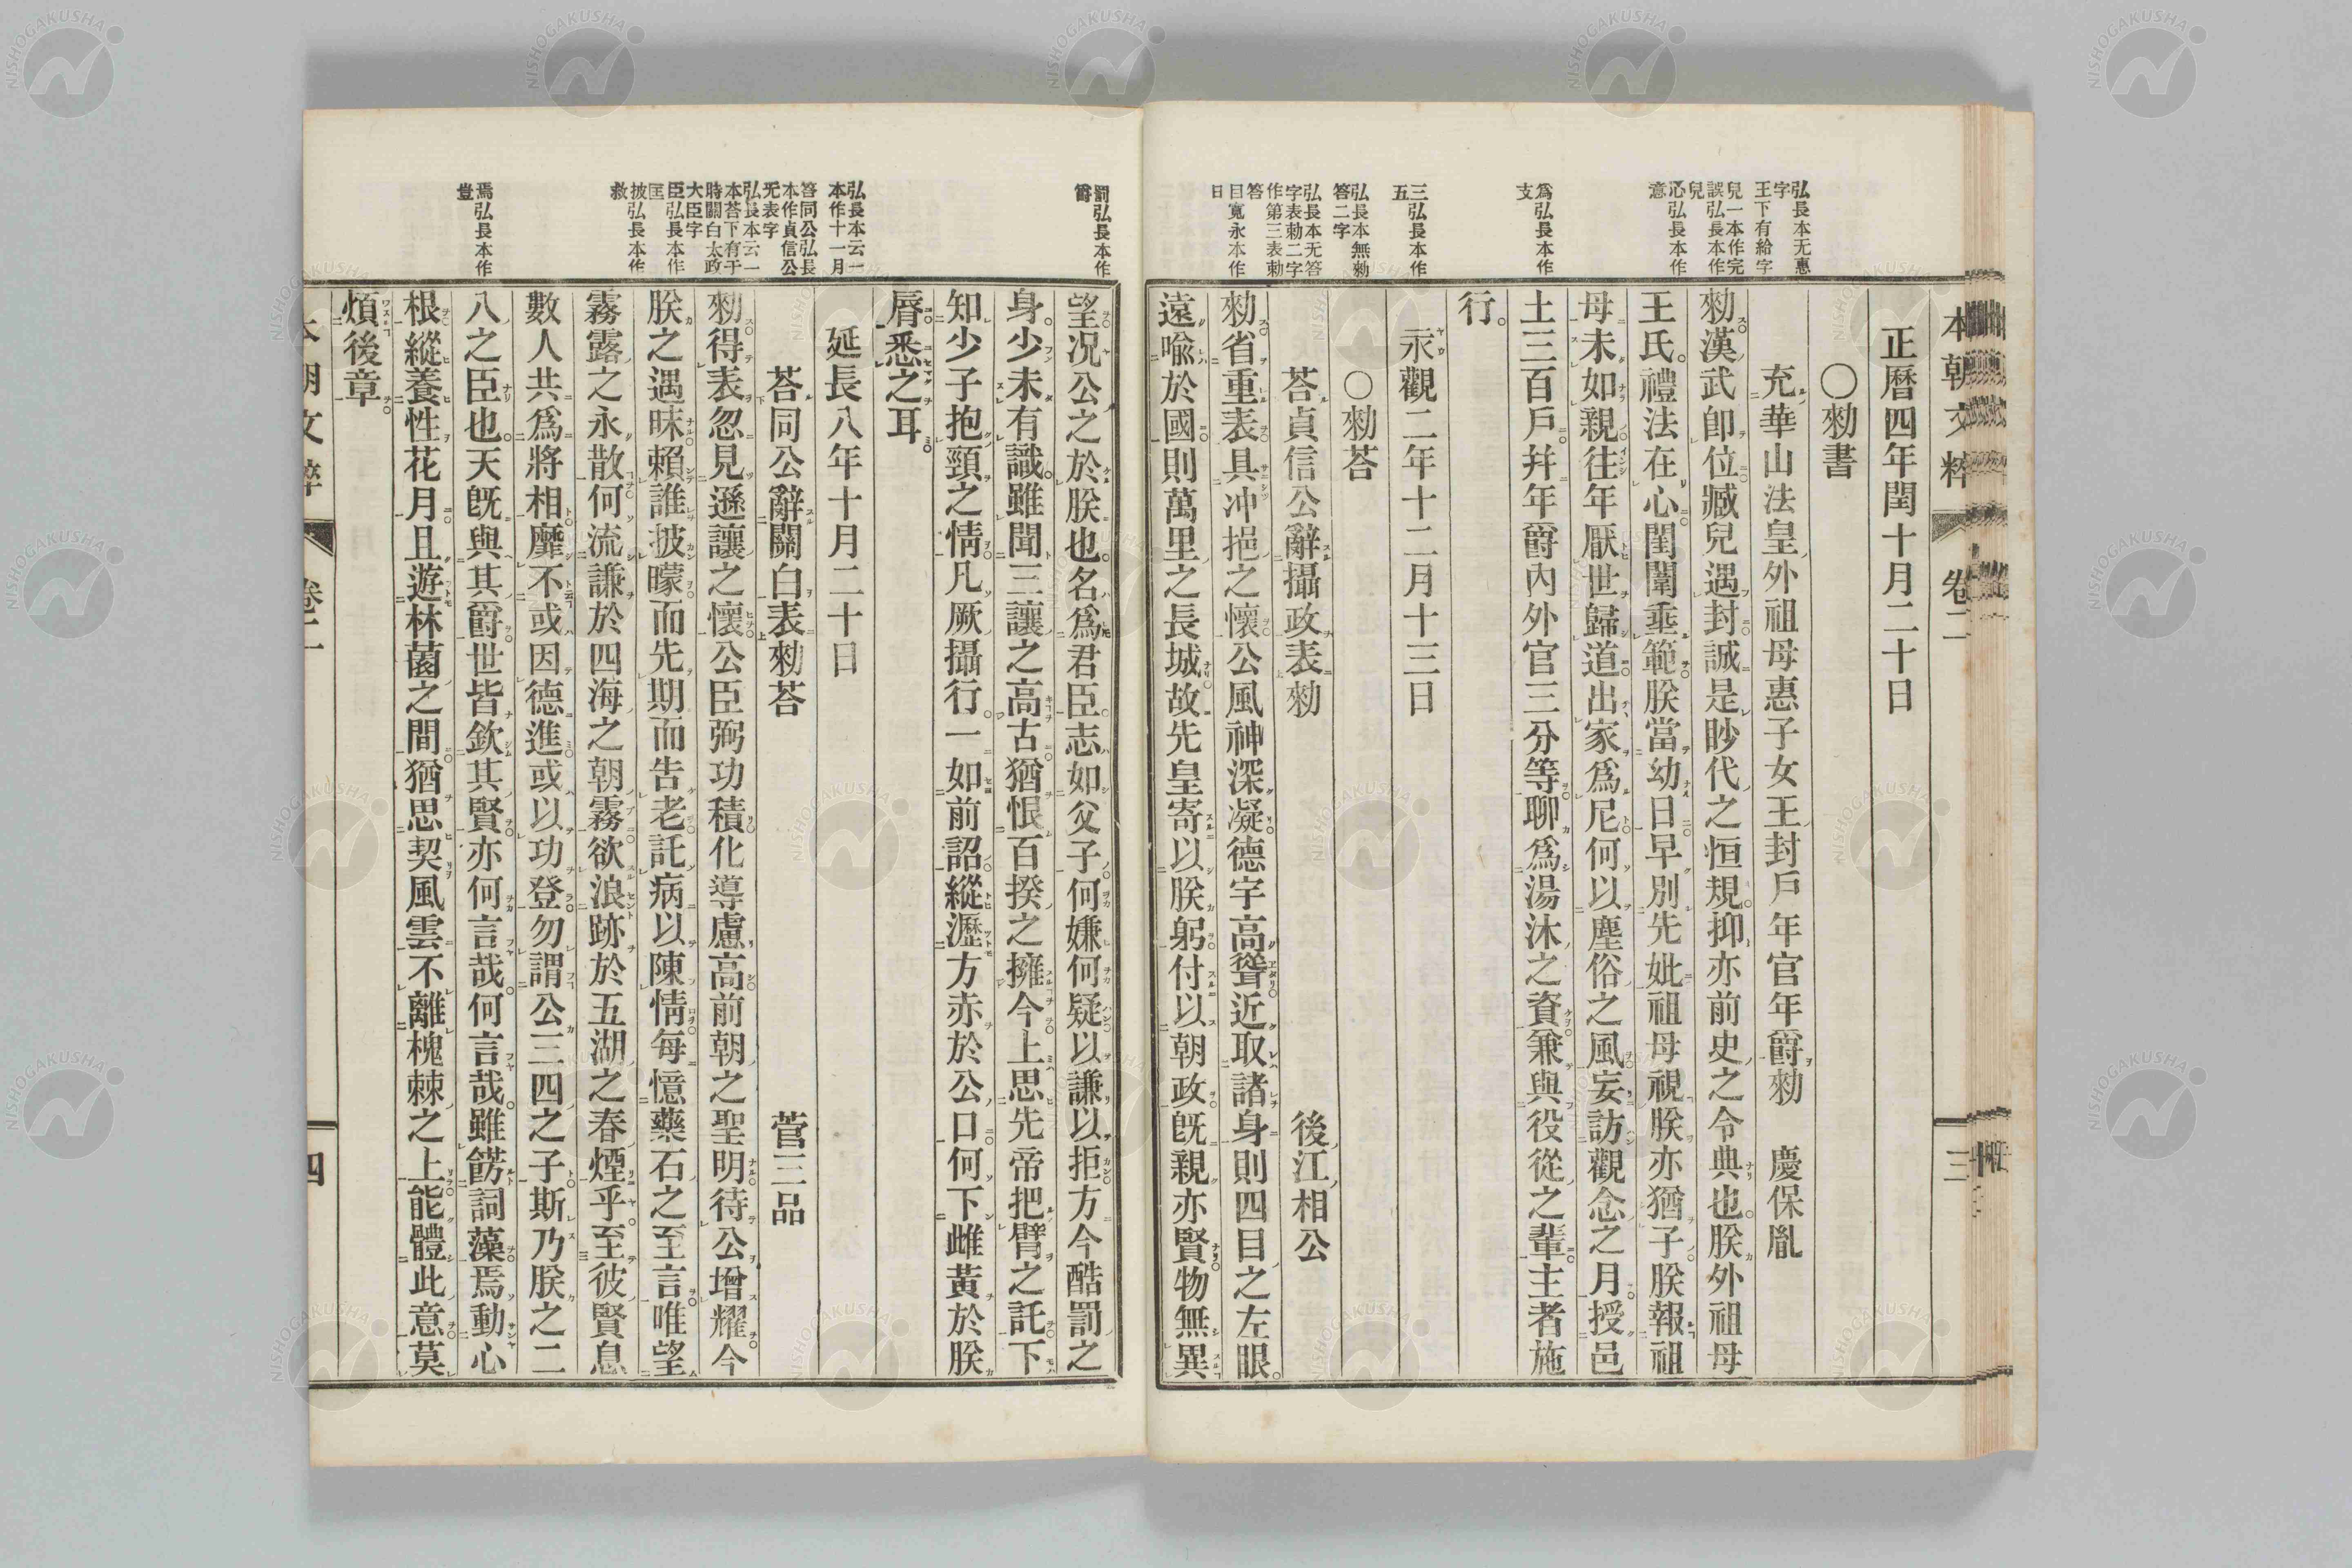 本朝文粹 卷二 三
正曆四年閏十月二十日
○勑書
充華山法皇外祖母惠子女王封戶年官年爵勑 慶保胤
勑漢武卽位臧兒遇封誠是眇代之恒規抑亦前史之令典也朕外祖母
王氏禮法在心閨闈垂範朕當幼日早別先妣祖母視朕亦猶子朕報祖
母未如親往年厭世歸道出家爲尼何以塵俗之風妄訪觀念之月授邑
土三百戶幷年爵內外官三分等聊爲湯沐之資兼與役從之輩主者施
行
永觀二年十二月十三日
○勑荅
荅貞信公辭攝政表勑 後江相公
勑省重表具冲挹之懷公風神深凝德宇高聳近取諸身則四目之左眼
遠喩於國則萬里之長城故先皇寄以朕躬付以朝政旣親亦賢物無異
弘長本无惠
字
王下有給字
兒一本作完
誤弘長本作
兒
心弘長本作
意
爲弘長本作
支
三弘長本作
五
弘長本無勑
答二字
弘長本无答
字表勑二字
作第三表勑
答
目寬永本作
日
望况公之於朕也名爲君臣志如父子何嫌何疑以謙以拒方今酷罰之
身少未有識雖聞三讓之高古猶恨百揆之擁今上思先帝把臂之託下
知少子抱頸之情凡厥攝行一如前詔縱瀝方赤於公口何下雌黃於朕
脣悉之耳
延長八年十月二十日
荅同公辭關白表勑荅 菅三品
勑得表忽見遜讓之懷公臣弼功積化導慮高前朝之聖明待公增耀今
朕之遇昧賴誰披矇而先期而告老託病以陳情每憶藥石之至言唯望
霧露之永散何流謙於四海之朝霧欲浪跡於五湖之春煙乎至彼賢息
數人共爲將相靡不或因德進或以功登勿謂公三四之子斯乃朕之二
八之臣也天旣與其爵世皆欽其賢亦何言哉何言哉雖餝詞藻焉動心
根縱養性花月且遊林薗之間猶思契風雲不離槐棘之上能體此意莫
煩後章
罰弘長本作
爵
弘長本云一
本作十一月
答同公弘長
本作貞信公
无表字
弘長本云一
本荅下有于
時關白太政
大臣字
臣弘長本作
匡
披弘長本作
救
焉弘長本作
豈
本朝文粹 卷二 四
NISHOGAKUSHA